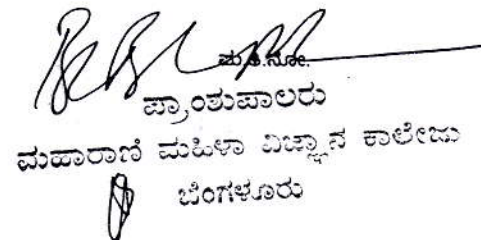 ಪ್ರಾಂಶುಪಾಲರು
ಮಹಾರಾಣಿ ಮಹಿಳಾ ವಿಜ್ಞಾನ ಕಾಲೇಜು
ಬೆಂಗಳೂರು